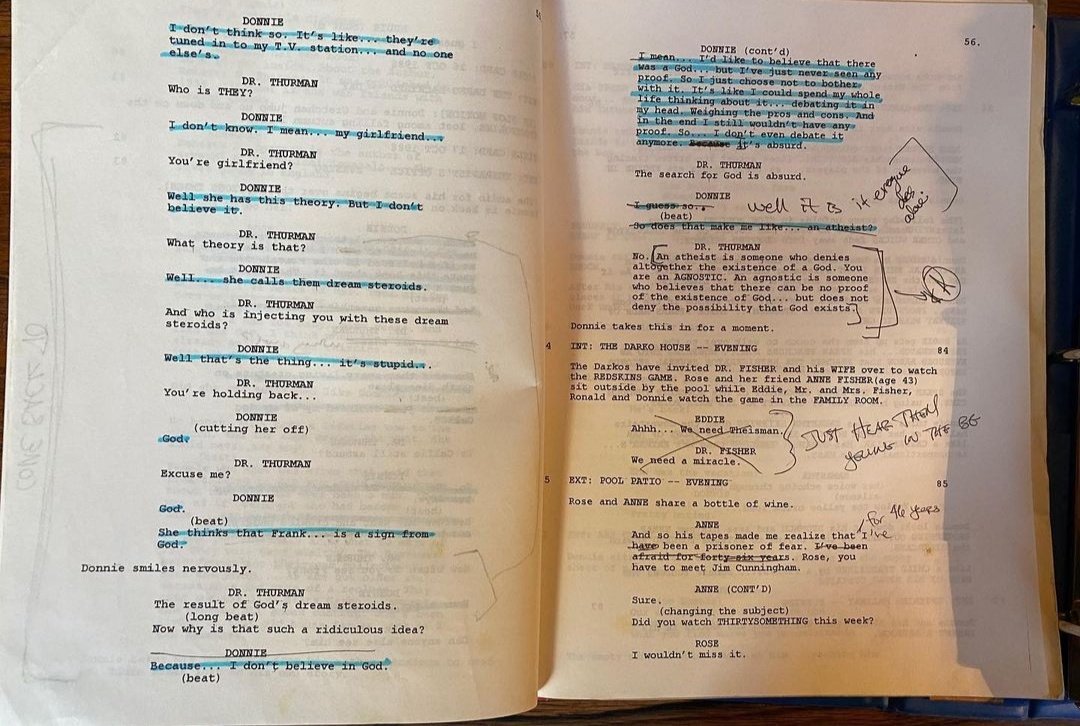 DONNIE
I don't think so. It's like... they're
tuned in to my T.V. station... and no one
else's.
DR. THURMAN
Who is THEY?
DONNIE
I don't know. I mean... my girlfriend...
DR. THURMAN
You're girlfriend?
DONNIE
Well she has this theory. But I don't
believe it.
DR. THURMAN
What theory is that?
DONNIE
Well... she calls them dream steroids.
DR. THURMAN
And who is injecting you with these dream
steroids?
DONNIE
Well that's the thing... it's stupid...
DR. THURMAN
You're holding back...
DONNIE
(cutting her off)
God.
DR. THURMAN
Excuse me?
DONNIE
God.
(beat)
She thinks that Frank... is a sign from
God.
Donnie smiles nervously.
DR. THURMAN
The result of God's dream steroids.
(long beat)
Now why is that such a ridiculous idea?
DONNIE
Because... I don't believe in God.
(beat)
56.
DONNIE (cont'd)
I mean... I'd like to believe that there
was a God... but I've just never seen any
proof. So I just choose not to bother
with it. It's like I could spend my whole
life thinking about it... debating it in
my head. Weighing the pros and cons. And
in the end I still wouldn't have any
proof. So... I don't even debate it
anymore. Because it's absurd.
DR. THURMAN
The search for God is absurd.
DONNIE
I guess so.. well it is if everyone
dies
alone.
(beat)
So does that make me like... an atheist?
DR. THURMAN
No. An atheist is someone who denies
altogether the existence of a God. You
are an AGNOSTIC. An agnostic is someone
who believes that there can be no proof
of the existence of God... but does not
deny the possibility that God exists.
Donnie takes this in for a moment.
4 INT: THE DARKO HOUSE -- EVENING 84
The Darkos have invited DR. FISHER and his WIFE over to watch
the REDSKINS GAME. Rose and her friend ANNE FISHER(age 43)
sit outside by the pool while Eddie, Mr. and Mrs. Fisher,
Ronald and Donnie watch the game in the FAMILY ROOM.
EDDIE
Ahhh... We need Theisman.
DR. FISHER
We need a miracle.
JUST HEAR THEM
YELLING IN THE BG
5 EXT: POOL PATIO -- EVENING 85
Rose and ANNE share a bottle of wine.
for 46 years
ANNE
And so his tapes made me realize that I've
have been a prisoner of fear. I've been
afraid for forty-six years. Rose, you
have to meet Jim Cunningham.
ANNE (CONT'D)
Sure.
(changing the subject)
Did you watch THIRTYSOMETHING this week?
ROSE
I wouldn't miss it.